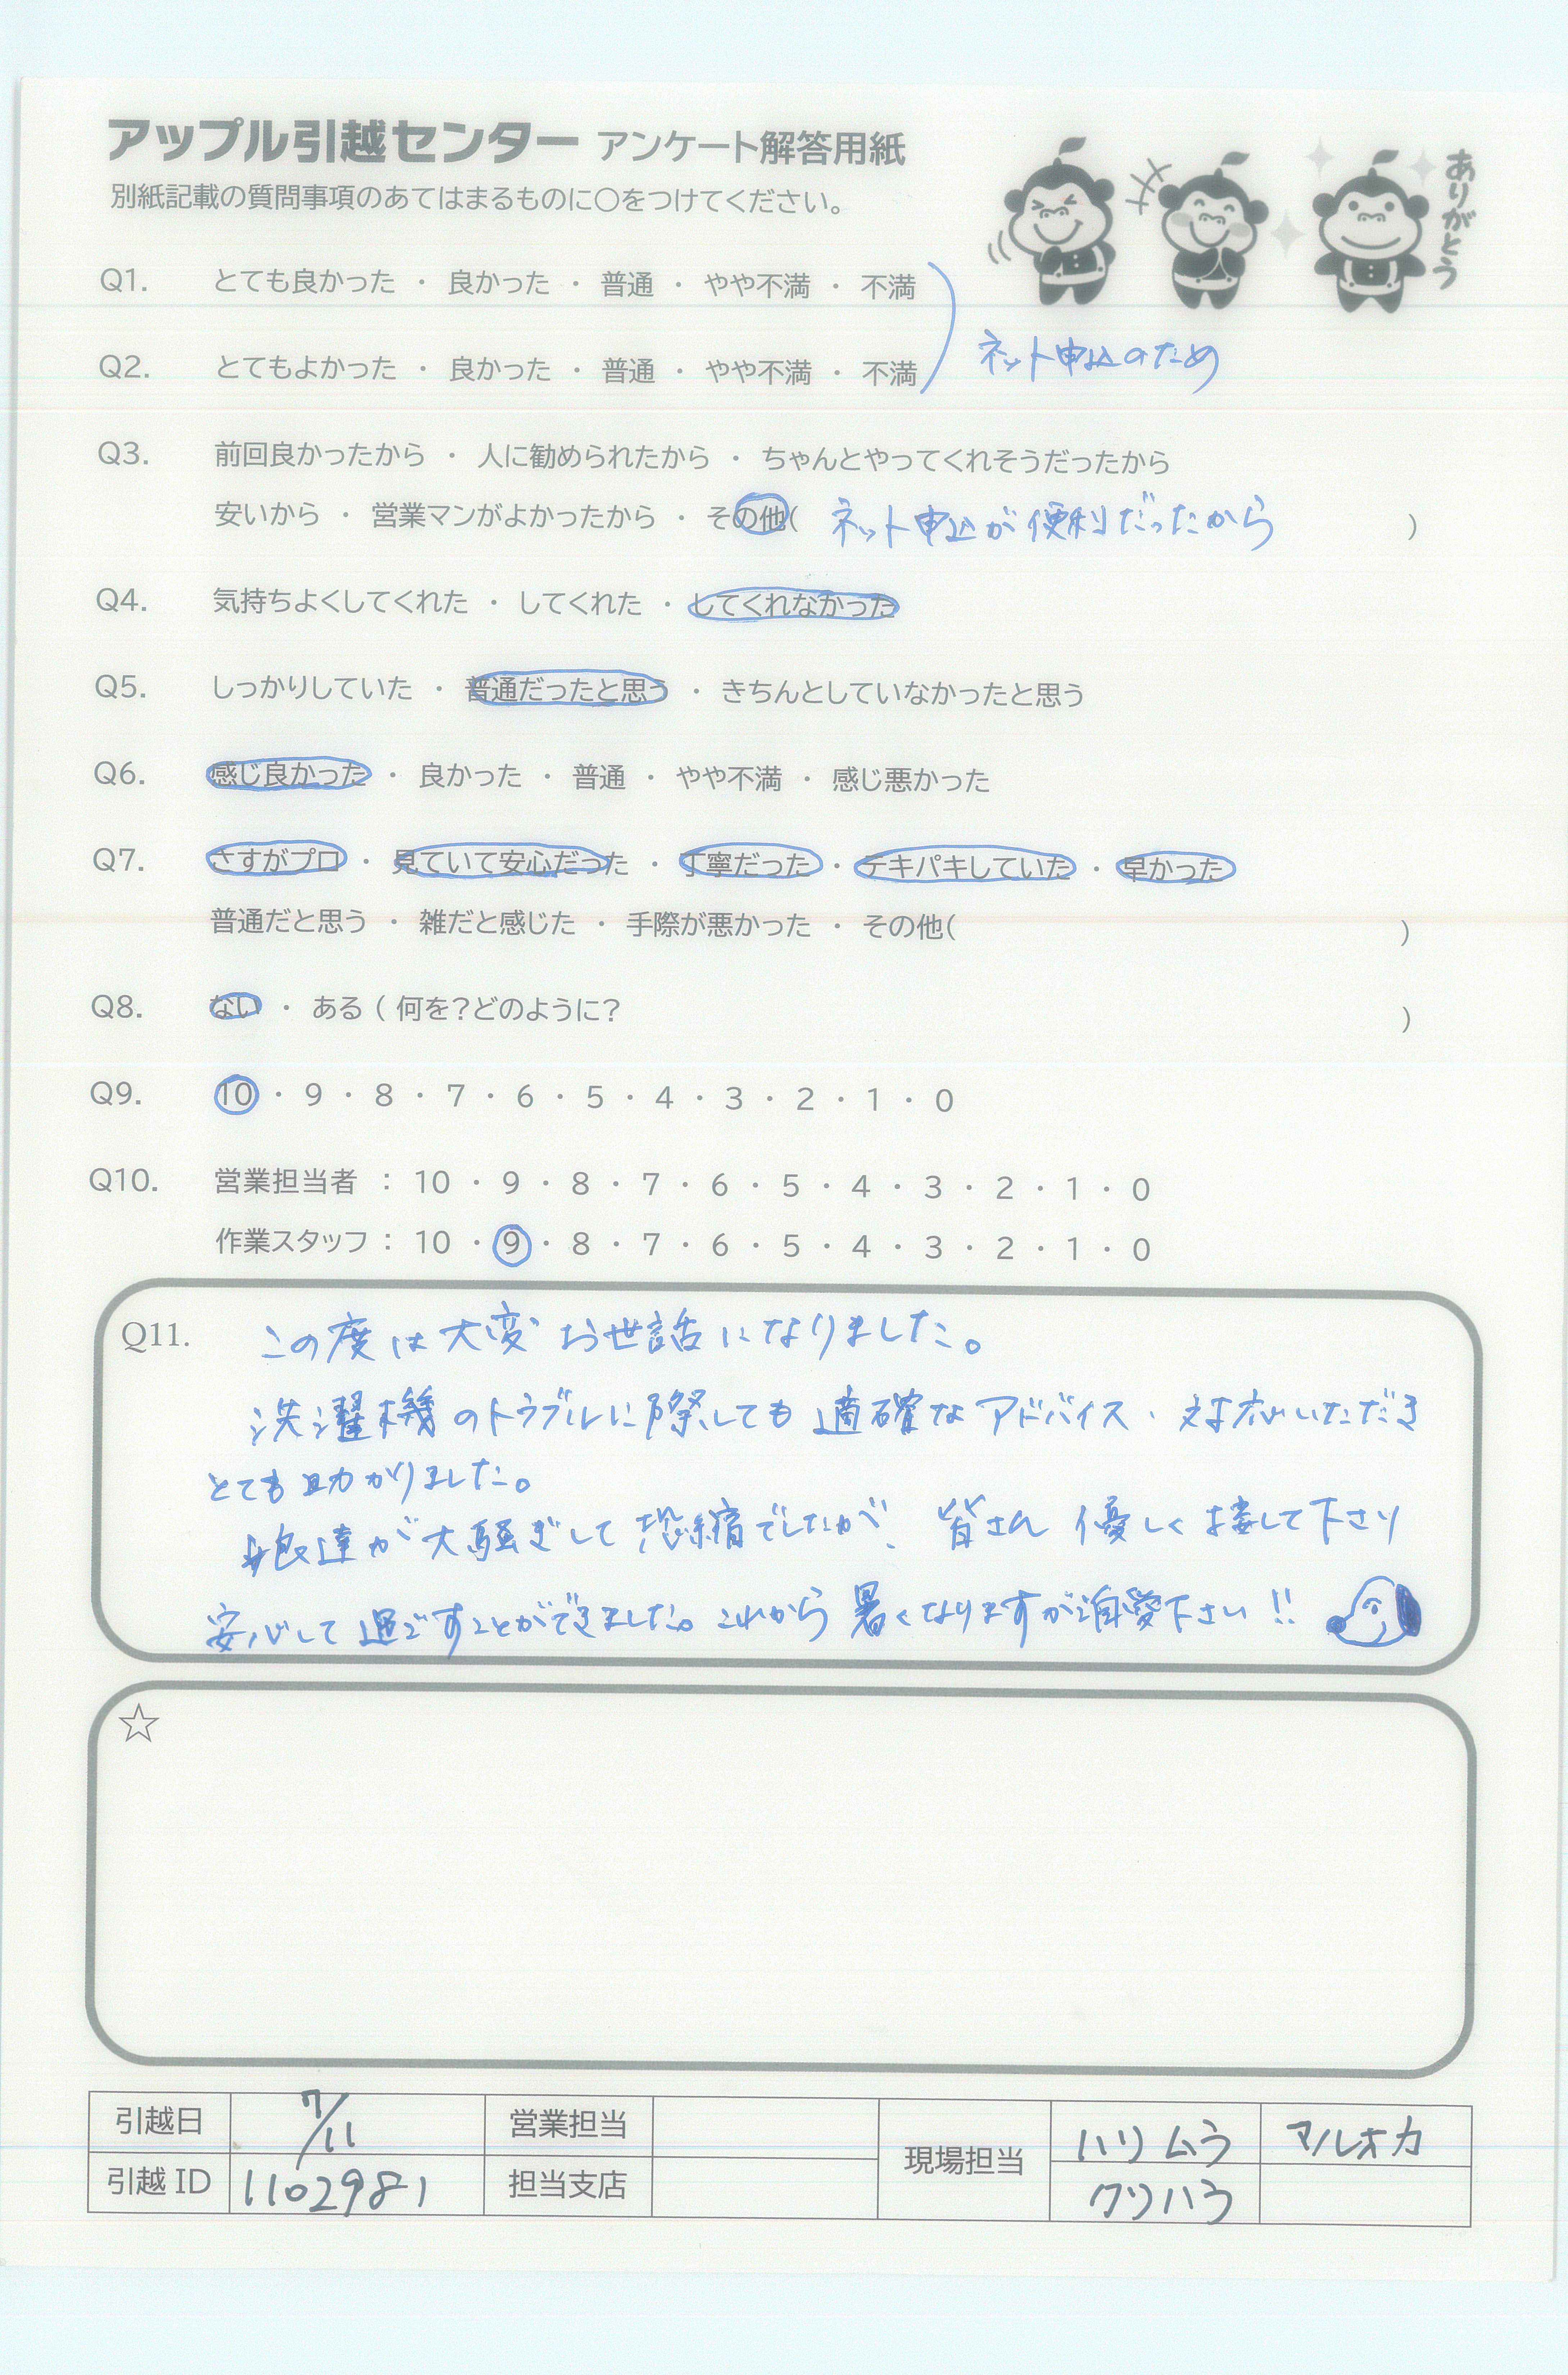 アップル引越センター アンケート解答用紙
別紙記載の質問事項のあてはまるものに○をつけてください。
ありがとう
Q1. とても良かった ・ 良かった ・ 普通 ・ やや不満 ・ 不満
Q2. とてもよかった ・ 良かった ・ 普通 ・ やや不満 ・ 不満
ネット申込のため
Q3. 前回良かったから ・ 人に勧められたから ・ ちゃんとやってくれそうだったから
安いから ・ 営業マンがよかったから ・ その他( ネット申込が便利だったから )
Q4. 気持ちよくしてくれた ・ してくれた ・ してくれなかった
Q5. しっかりしていた ・ 普通だったと思う ・ きちんとしていなかったと思う
Q6. 感じ良かった ・ 良かった ・ 普通 ・ やや不満 ・ 感じ悪かった
Q7. さすがプロ ・ 見ていて安心だった ・ 丁寧だった ・ テキパキしていた ・ 早かった
普通だと思う ・ 雑だと感じた ・ 手際が悪かった ・ その他( )
Q8. ない ・ ある ( 何を?どのように? )
Q9. 10 ・ 9 ・ 8 ・ 7 ・ 6 ・ 5 ・ 4 ・ 3 ・ 2 ・ 1 ・ 0
Q10. 営業担当者 : 10 ・ 9 ・ 8 ・ 7 ・ 6 ・ 5 ・ 4 ・ 3 ・ 2 ・ 1 ・ 0
作業スタッフ : 10 ・ 9 ・ 8 ・ 7 ・ 6 ・ 5 ・ 4 ・ 3 ・ 2 ・ 1 ・ 0
Q11. この度は大変お世話になりました。
洗濯機のトラブルに際しても適確なアドバイス、対応いただき
とても助かりました。
娘達が大騒ぎして恐縮でしたが、皆さん優しく接して下さり
安心して過ごすことができました。これから暑くなりますがご自愛下さい!!
☆
引越日 7/11 営業担当 現場担当 ハリムラ マルオカ
引越 ID 1102981 担当支店 クリハラ